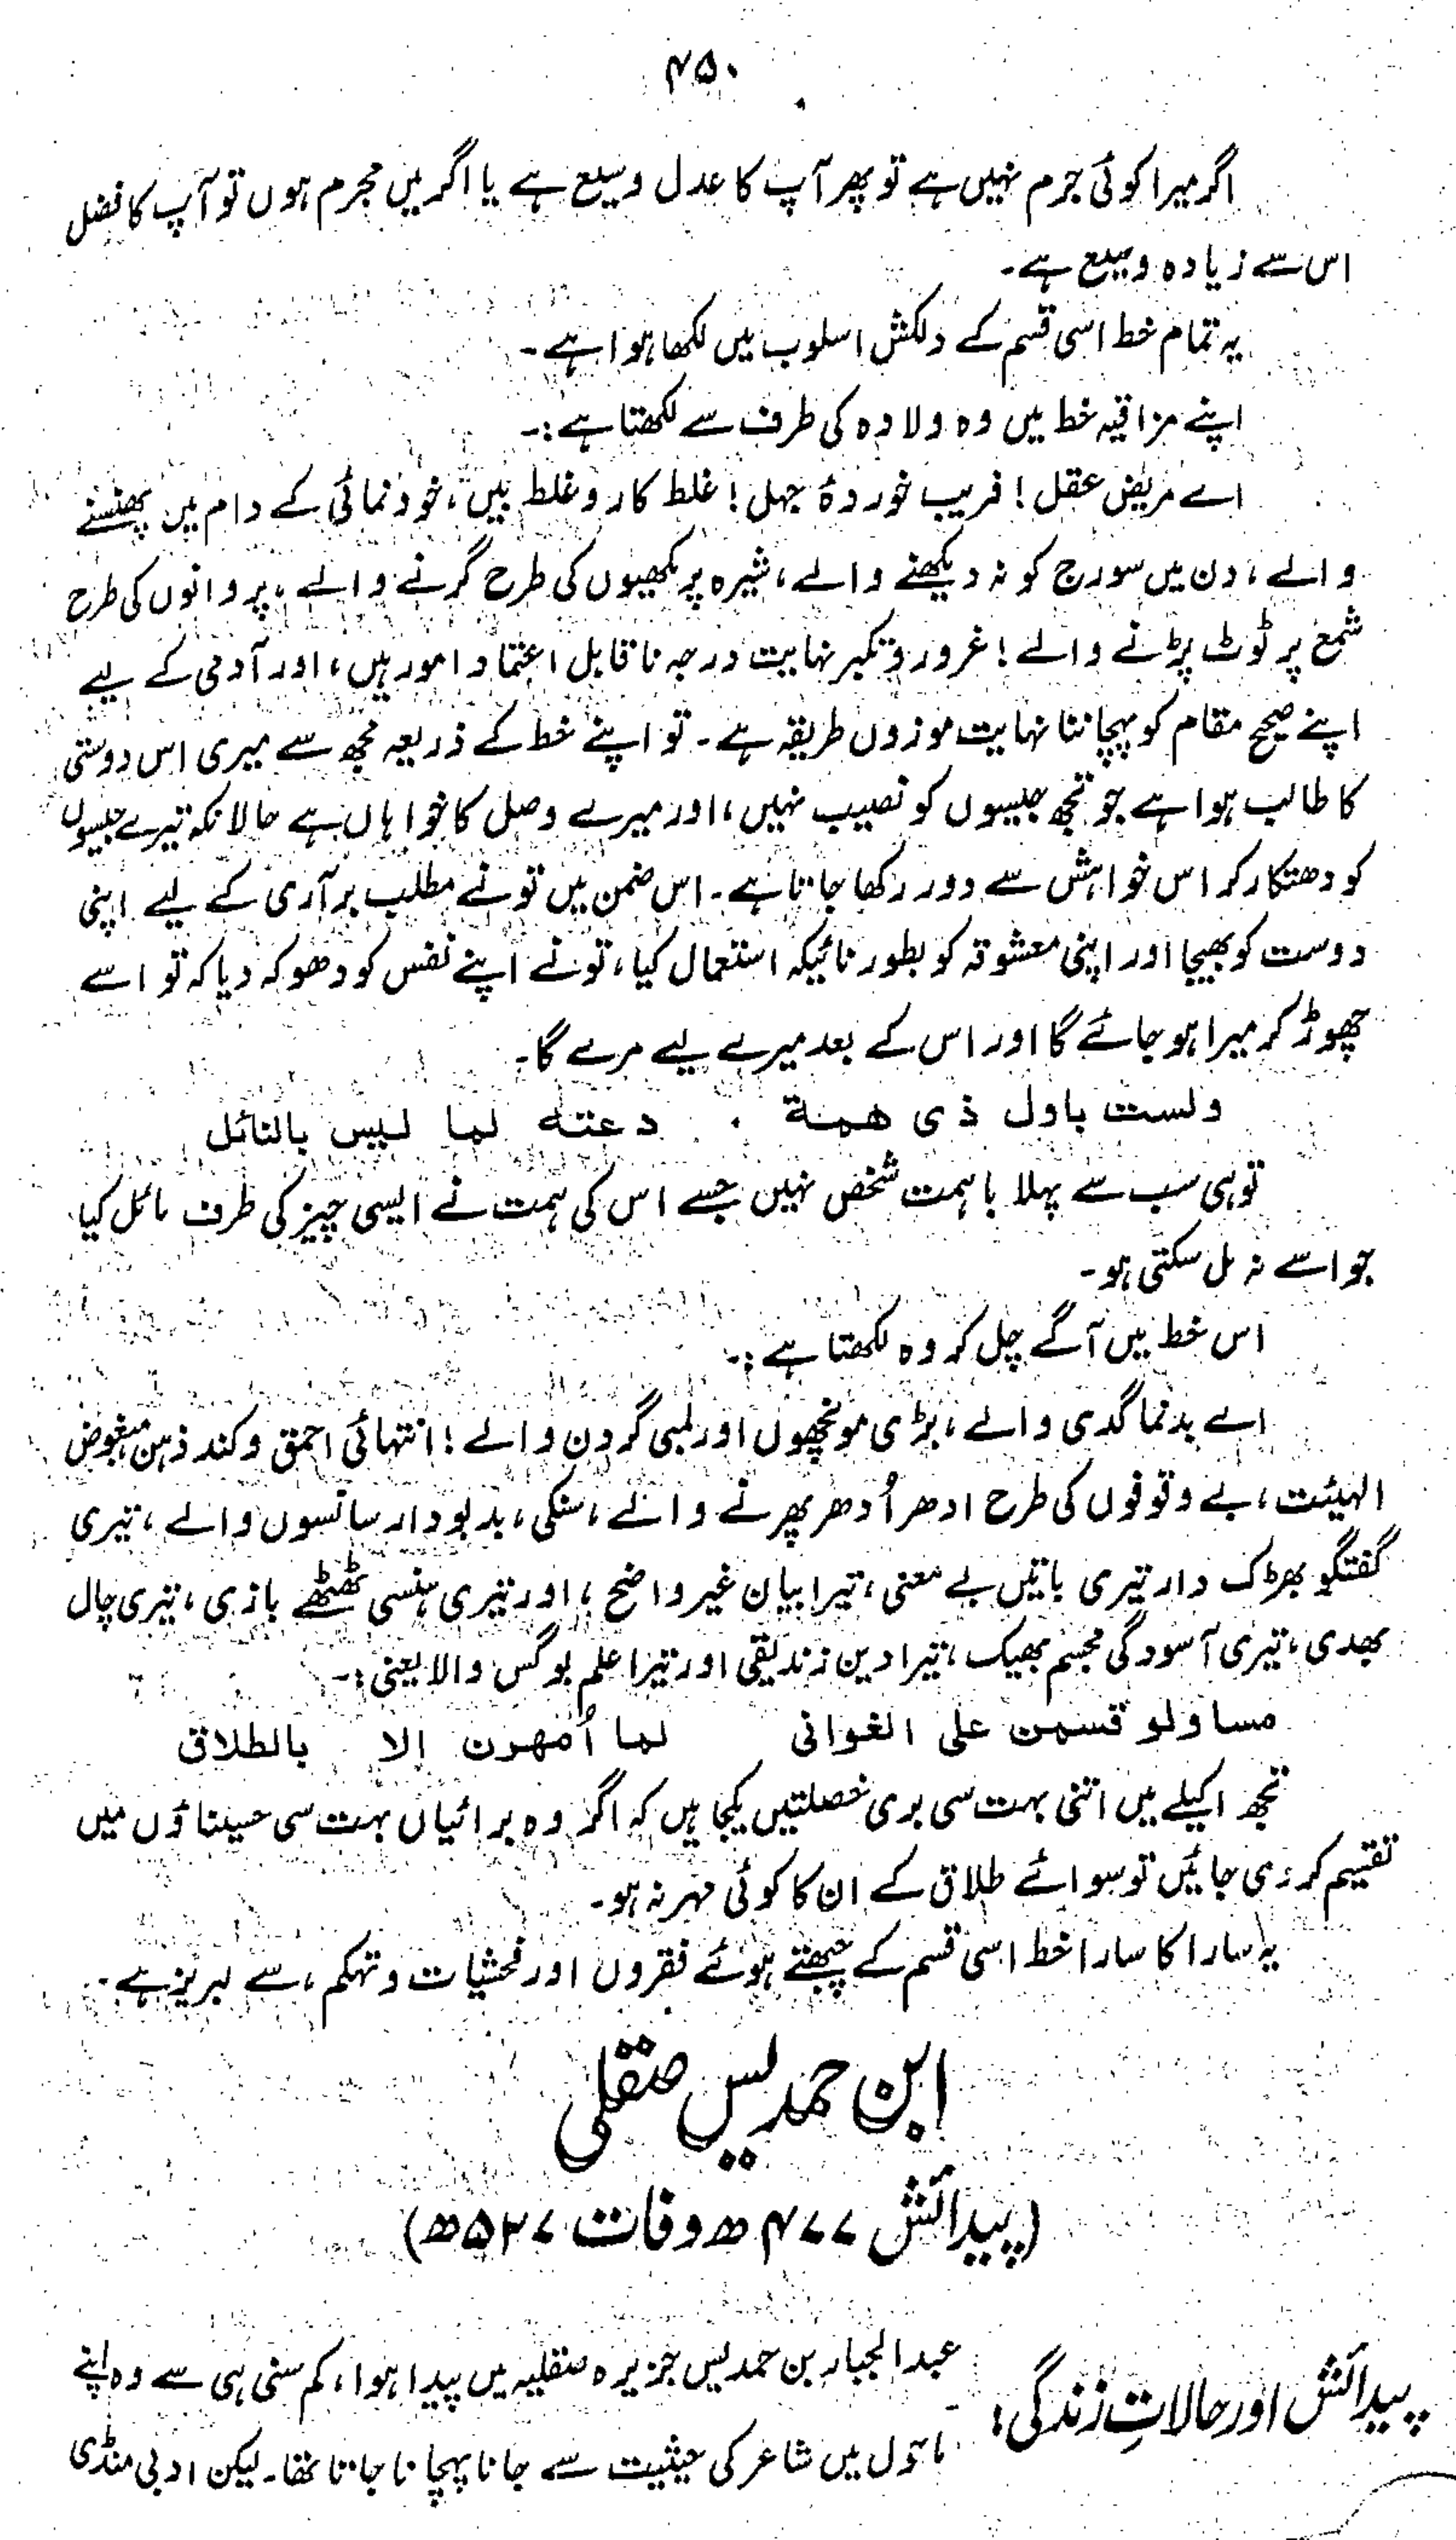 ۴۵۰
اگر میرا کوئی جرم نہیں ہے تو پھر آپ کا عدل وسیع ہے یا اگر میں مجرم ہوں تو آپ کا فضل
اس سے زیادہ وسیع ہے۔
یہ تمام خط اسی قسم کے دلکش اسلوب میں لکھا ہوا ہے۔
اپنے مزاقیہ خط میں وہ ولادہ کی طرف سے لکھتا ہے:۔
اے مریض عقل! فریب خوردۂ جہل! غلط کار و غلط بیں، خود نمائی کے دام میں پھنسنے
والے، دن میں سورج کو نہ دیکھنے والے، شیرہ پر مکھیوں کی طرح گرنے والے، پروانوں کی طرح
شمع پر ٹوٹ پڑنے والے! غرور و تکبر نہایت درجہ ناقابل اعتماد امور ہیں، اور آدمی کے لیے
اپنے صحیح مقام کو پہچاننا نہایت موزوں طریقہ ہے۔ تو اپنے خط کے ذریعہ مجھ سے میری اس دوستی
کا طالب ہوا ہے جو تجھ جیسوں کو نصیب نہیں، اور میرے وصل کا خواہاں ہے حالانکہ تیرے جیسوں
کو دھتکار کر اس خواہش سے دور رکھا جاتا ہے۔ اس ضمن میں تو نے مطلب برآری کے لیے اپنی
دوست کو بھیجا اور اپنی معشوقہ کو بطور نائیکہ استعمال کیا، تو نے اپنے نفس کو دھوکہ دیا کہ تو اسے
چھوڑ کر میرا ہو جائے گا اور اس کے بعد میرے لیے مرے گا۔
ولست باول ذی ھمة . دعته لما لیس بالنائل
تو ہی سب سے پہلا باہمت شخص نہیں جسے اس کی ہمت نے ایسی چیز کی طرف مائل کیا
جو اسے نہ مل سکتی ہو۔
اس خط میں آگے چل کر وہ لکھتا ہے:۔
اے بدنما گدی والے، بڑی مونچھوں اور لمبی گردن والے! انتہائی احمق و کند ذہن مبغوض
الہیئت، بے وقوفوں کی طرح ادھر اُدھر پھرنے والے، سنکی، بدبودار سانسوں والے، تیری
گفتگو بھڑک دار تیری باتیں بے معنی، تیرا بیان غیر واضح، اور تیری ہنسی ٹھٹھے بازی، تیری چال
بھدی، تیری آسودگی مجسم بھیک، تیرا دین زندیقی اور تیرا علم بوگس والا یعنی:۔
مساو لو قسمن علی الغوانی لما اُمهرن إلا بالطلاق
تجھ اکیلے میں اتنی بہت سی بری خصلتیں یکجا ہیں کہ اگر وہ برائیاں بہت سی حسیناؤں میں
تقسیم کر دی جائیں تو سوائے طلاق کے ان کا کوئی مہر نہ ہو۔
یہ سارا کا سارا خط اسی قسم کے چبھتے ہوئے فقروں اور فحشیات و تہکم، سے لبریز ہے۔
ابن حمدیس صقلی
(پیدائش ۴۷۷ھ وفات ۵۲۷ھ)
پیدائش اور حالاتِ زندگی: عبدالجبار بن حمدیس جزیرہ صقلیہ میں پیدا ہوا، کم سنی ہی سے وہ اپنے
ماحول میں شاعر کی حیثیت سے جانا پہچانا جاتا تھا۔ لیکن ادبی منڈی